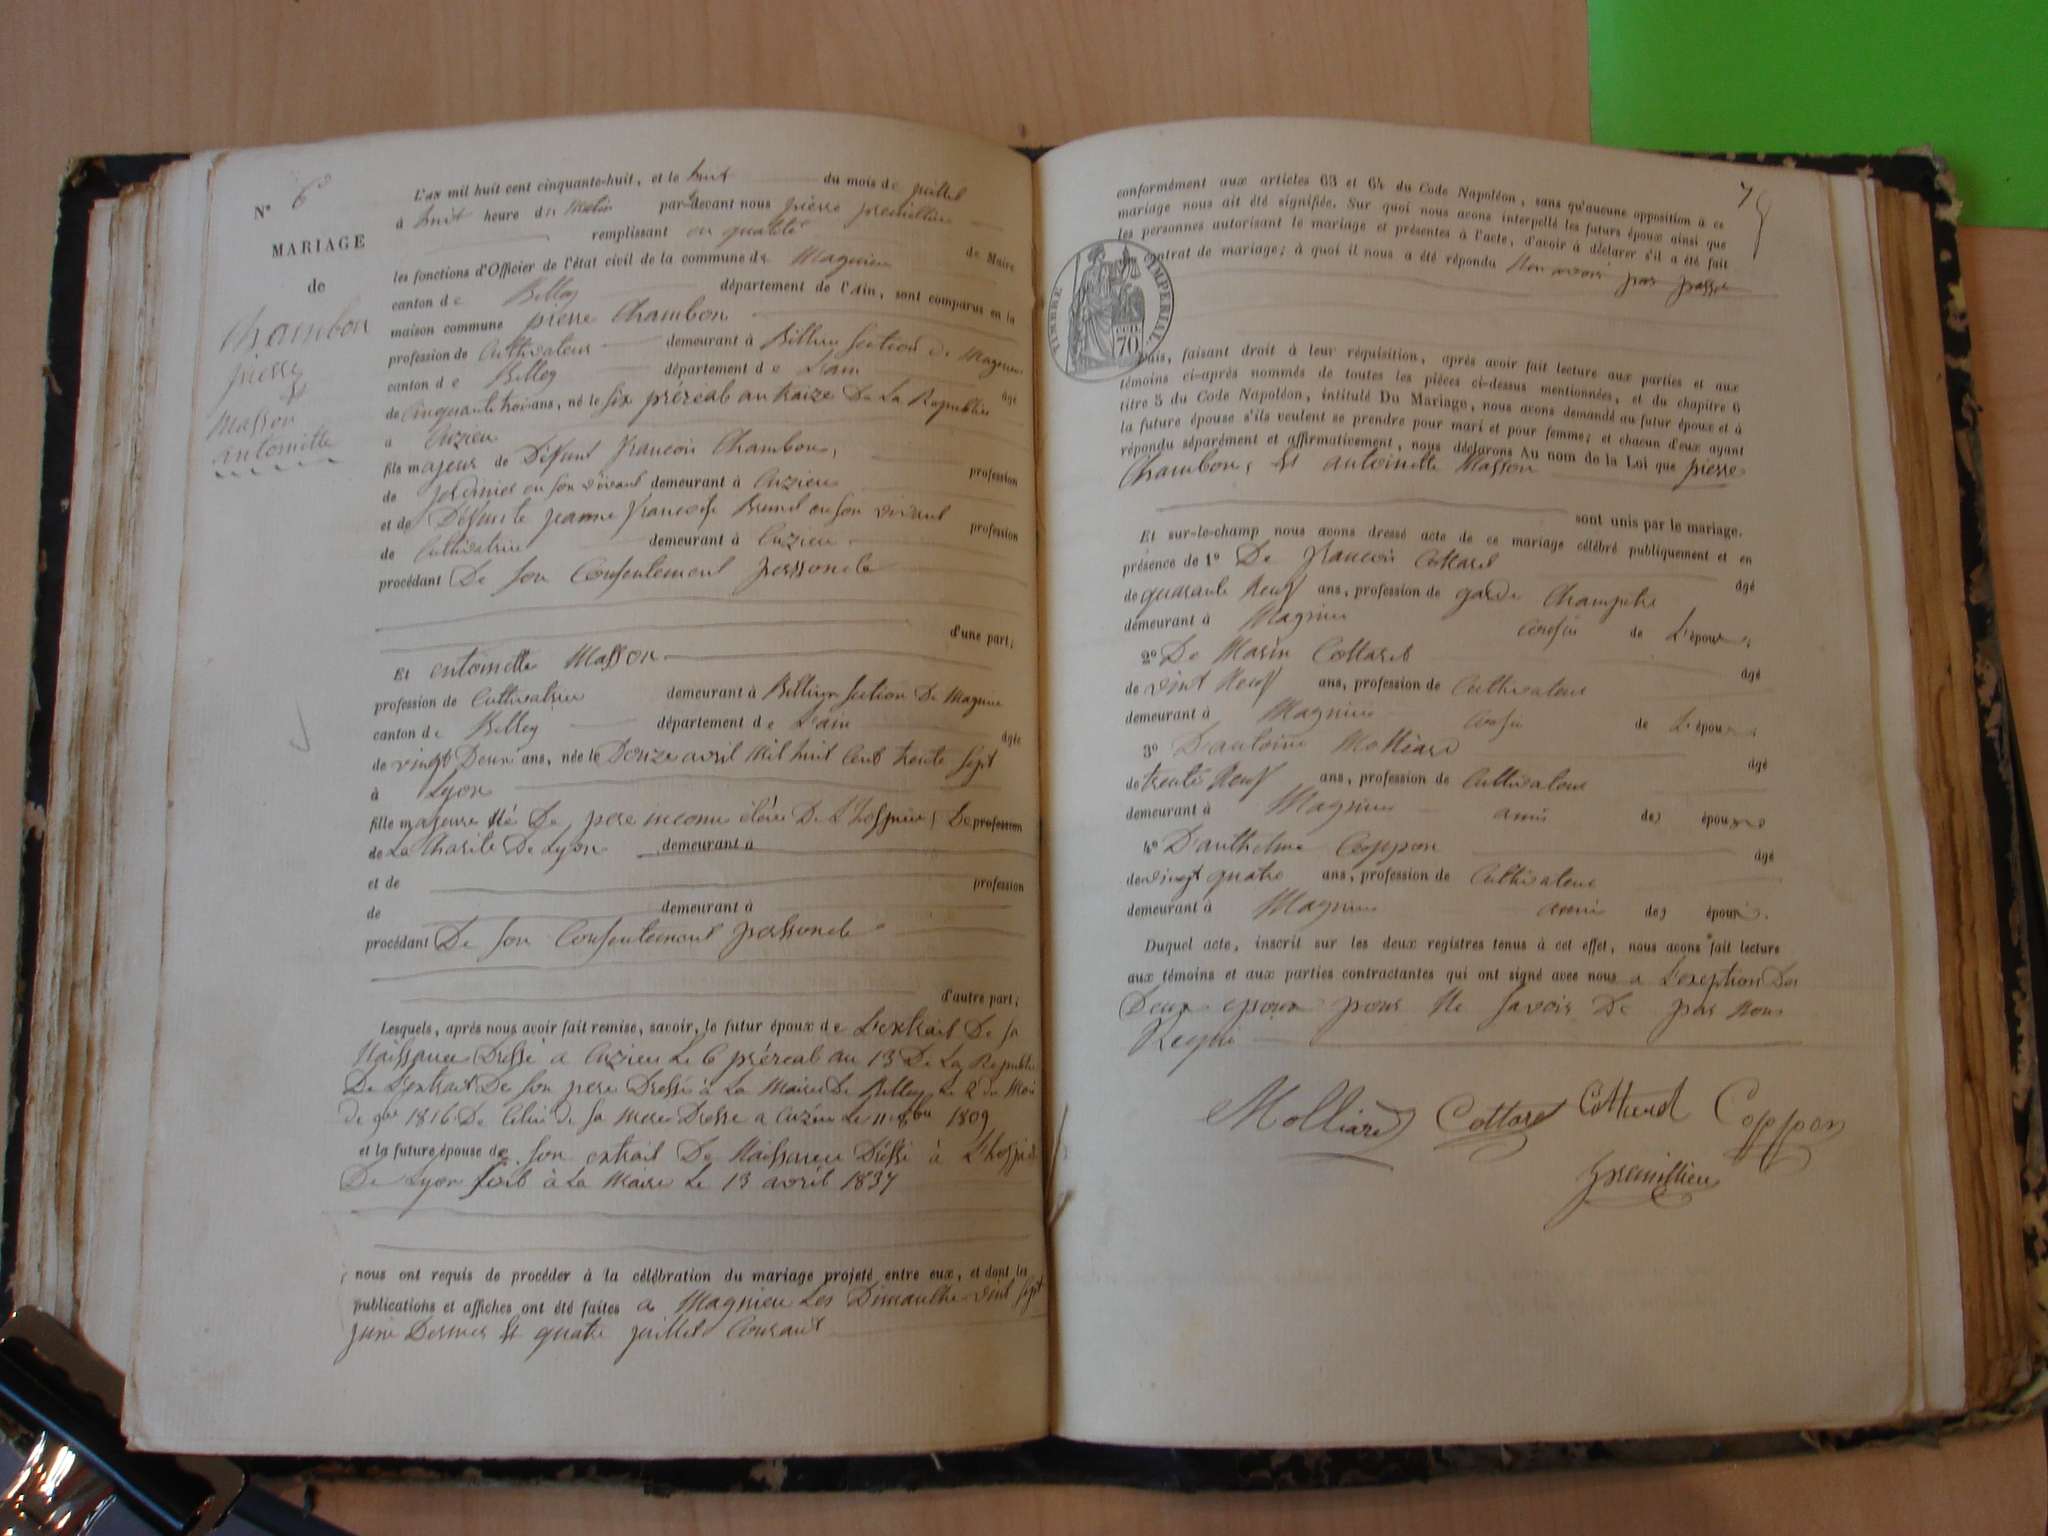 N° 6
MARIAGE
de
Chambon
pierre
et
Masson
antoinette
L'an mil huit cent cinquante-huit, et le huit du mois de juillet
à huit heure du Matin par-devant nous pierre premillieu
remplissant en qualité de Maire
les fonctions d'Officier de l'état civil de la commune de Magnieu
canton de Belley département de l'Ain, sont comparus en la
maison commune pierre Chambon
profession de Cultivateur demeurant à Billieu section de Magnieu
canton de Belley département de L'ain âgé
de Cinquante trois ans, né le six préreal an traize De La Republie
à Cuzieu
fils majeur de Défunt francois Chambon,
profession
de jardinier en son vivant demeurant à Cuzieu
et de Défunte jeanne francoise Brunet en son vivant profession
de Cultivatrice demeurant à Cuzieu
procédant De son Consentement perssonele
d'une part;
Et entoinette Masson
profession de Cultivatrice demeurant à Billieu section De Magnieu
canton de Belley département de L'ain âgée
de vingt Deux ans, née le Douze avril Mil huit Cent trente sept
à Lyon
fille majeure né De pere inconu élévé De L'hospice De profession
de La Charite De Lyon demeurant à
et de profession
de demeurant à
procédant De son Consentement perssonele
d'autre part;
Lesquels, après nous avoir fait remise, savoir, le futur époux de L'extrait De sa
Naissance Dressé a Cuzieu Le 6 préreal an 13 De La Republie
De L'extrait De son pere Dressé à La Mairie De Belley Le 2 du Moi
de 9bre 1816 De Celui de sa Mere Dresse a Cuzieu Le 11 8bre 1809
et la future épouse de son extrait De Naissance Dressé à L'hospice
De Lyon soit à La Maire Le 13 avril 1837
nous ont requis de procéder à la célébration du mariage projeté entre eux, et dont les
publications et affiches ont été faites a Magnieu Les Dimanche vint sept
juin Dernier et quatre juillet Courant
conformément aux articles 63 et 64 du Code Napoléon, sans qu'aucune opposition à ce
mariage nous ait été signifiée. Sur quoi nous avons interpellé les futurs époux ainsi que
les personnes autorisant le mariage et présentes à l'acte, d'avoir à déclarer s'il a été fait
contrat de mariage; à quoi il nous a été répondu Non avoir pas passé
TIMBRE IMPÉRIAL
70 CEN
Puis, faisant droit à leur réquisition, après avoir fait lecture aux parties et aux
témoins ci-après nommés de toutes les pièces ci-dessus mentionnées, et du chapitre 6
titre 5 du Code Napoléon, intitulé Du Mariage, nous avons demandé au futur époux et à
la future épouse s'ils veulent se prendre pour mari et pour femme; et chacun d'eux ayant
répondu séparément et affirmativement, nous déclarons Au nom de la Loi que pierre
Chambon, Et antoinette Masson
sont unis par le mariage.
Et sur-le-champ nous avons dressé acte de ce mariage célébré publiquement et en
présence de 1° De francois Cottaret
âgé
de quarante Neuf ans, profession de garde Champetre
demeurant à Magnieu cousin de L'époux;
2° De Marin Cottaret
âgé
de vint Neuf ans, profession de Cultivateur
demeurant à Magnieu de L'époux;
3° D'antoine Molliard
âgé
de trente Neuf ans, profession de Cultivateur
demeurant à Magnieu amis des époux
4° D'anthelme Coppon
âgé
de vingt quatre ans, profession de Cultivateur
demeurant à Magnieu amis des époux.
Duquel acte, inscrit sur les deux registres tenus à cet effet, nous avons fait lecture
aux témoins et aux parties contractantes qui ont signé avec nous a L'exeption Des
Deux epoux pour Ne savoir De par Nous
Requi
Molliard Cottaret Cottaret Coppon
premillieu